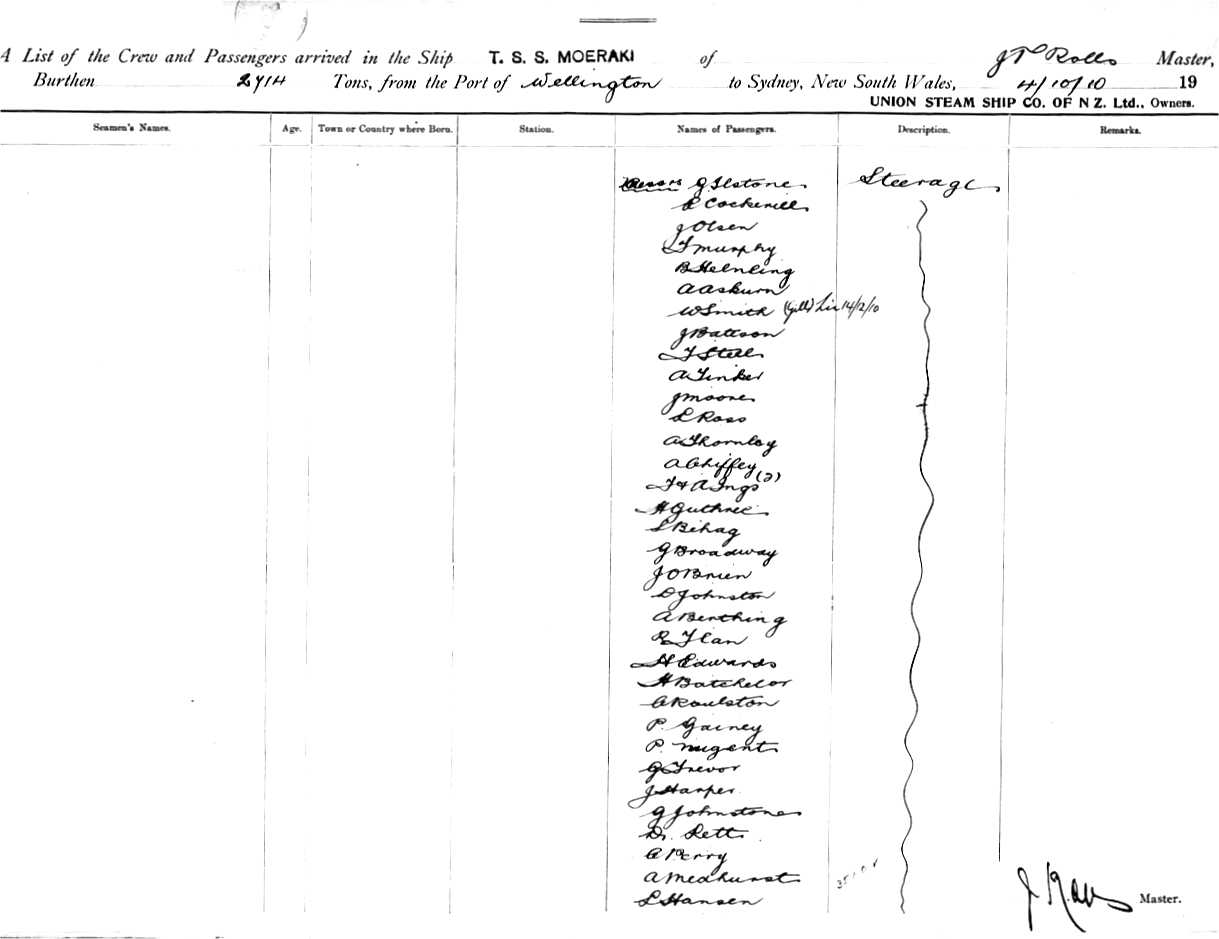 A List of the Crew and Passengers arrived in the Ship T. S. S. MOERAKI of J P Rolls Master,
Burthen 2714 Tons, from the Port of Wellington to Sydney, New South Wales, 4/10/10 19
UNION STEAM SHIP CO. OF N Z. Ltd., Owners.
Seamen's Names. Age. Town or Country where Born. Station. Names of Passengers. Description. Remarks.
Messrs G Ilstone Steerage
Cockerill
J Olsen
T Murphy
B Helnling
A Askurn
W Smith (Gill) 14/12/10
J Battson
T Stell
A Tinker
J Moore
L Ross
A Thornley
A Chiffey
T & A Ings (2)
H Guthrie
L Bihag
G Broadway
J O Brien
D Johnston
A Benthing
R Ilan
H Edwards
H Batchelor
C Roulston
P. Gainey
P. Nugent
G Trevor
J Harper
G Johnstone
D. Lett
C Perry
A Medhurst
L Hansen
J Rolls Master.